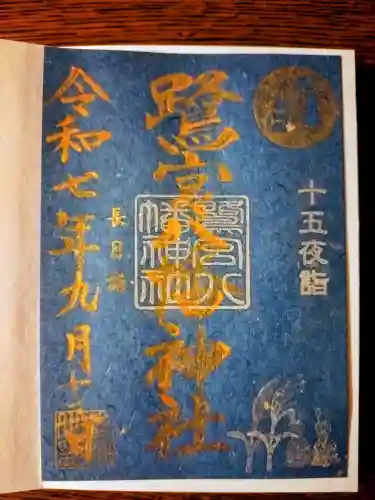 十五夜詣
鷺宮八幡神社
鷺宮八幡神社
長月詣
令和七年九月十